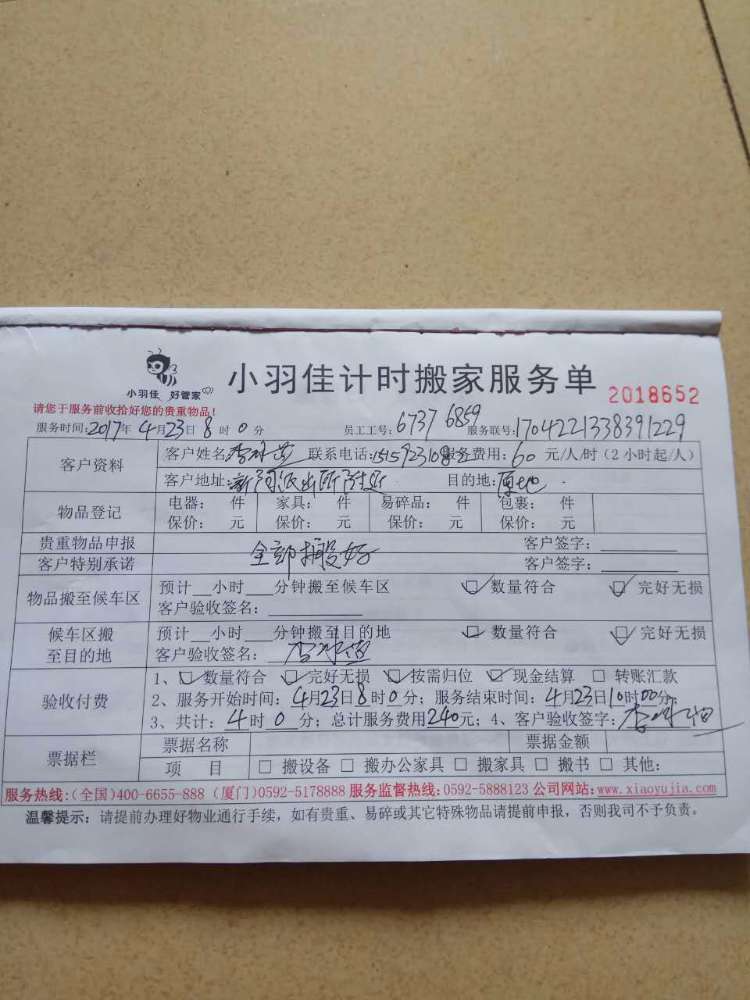 小羽佳 好管家
小羽佳计时搬家服务单 2018652
请您于服务前收拾好您的贵重物品!
服务时间:2017年4月23日8时0分 员工工号:6737 6859 服务联号:1704221338391229
客户资料
客户姓名: 联系电话: 服务费用:60元/人/时(2小时起/人)
客户地址: 派出所附近 目的地:原地
物品登记
电器: 件 家具: 件 易碎品: 件 包裹: 件
保价: 元 保价: 元 保价: 元 保价: 元
贵重物品申报 客户签字:
客户特别承诺 全部搬好 客户签字:
物品搬至候车区
预计__小时__分钟搬至候车区 数量符合 完好无损
客户验收签名:
候车区搬至目的地
预计__小时__分钟搬至目的地 数量符合 完好无损
客户验收签名:
验收付费
1、数量符合 完好无损 按需归位 现金结算 转账汇款
2、服务开始时间:4月23日8时0分;服务结束时间:4月23日10时00分
3、共计:4时0分;总计服务费用240元;4、客户验收签字:
票据栏
票据名称 票据金额
项 目 □ 搬设备 □ 搬办公家具 □ 搬家具 □ 搬书 □ 其他:
服务热线:(全国)400-6655-888 (厦门)0592-5178888 服务监督热线:0592-5888123 公司网站:www.xiaoyujia.com
温馨提示:请提前办理好物业通行手续,如有贵重、易碎或其它特殊物品请提前申报,否则我司不予负责。